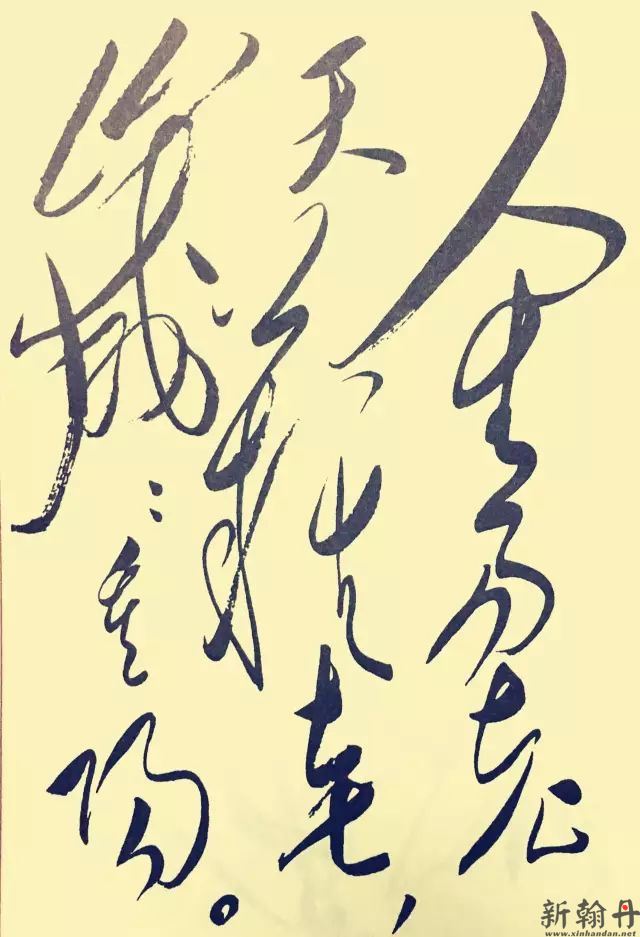 人生易老
天難老，
歲〻重陽。
新翰丹
www.xinhandan.net